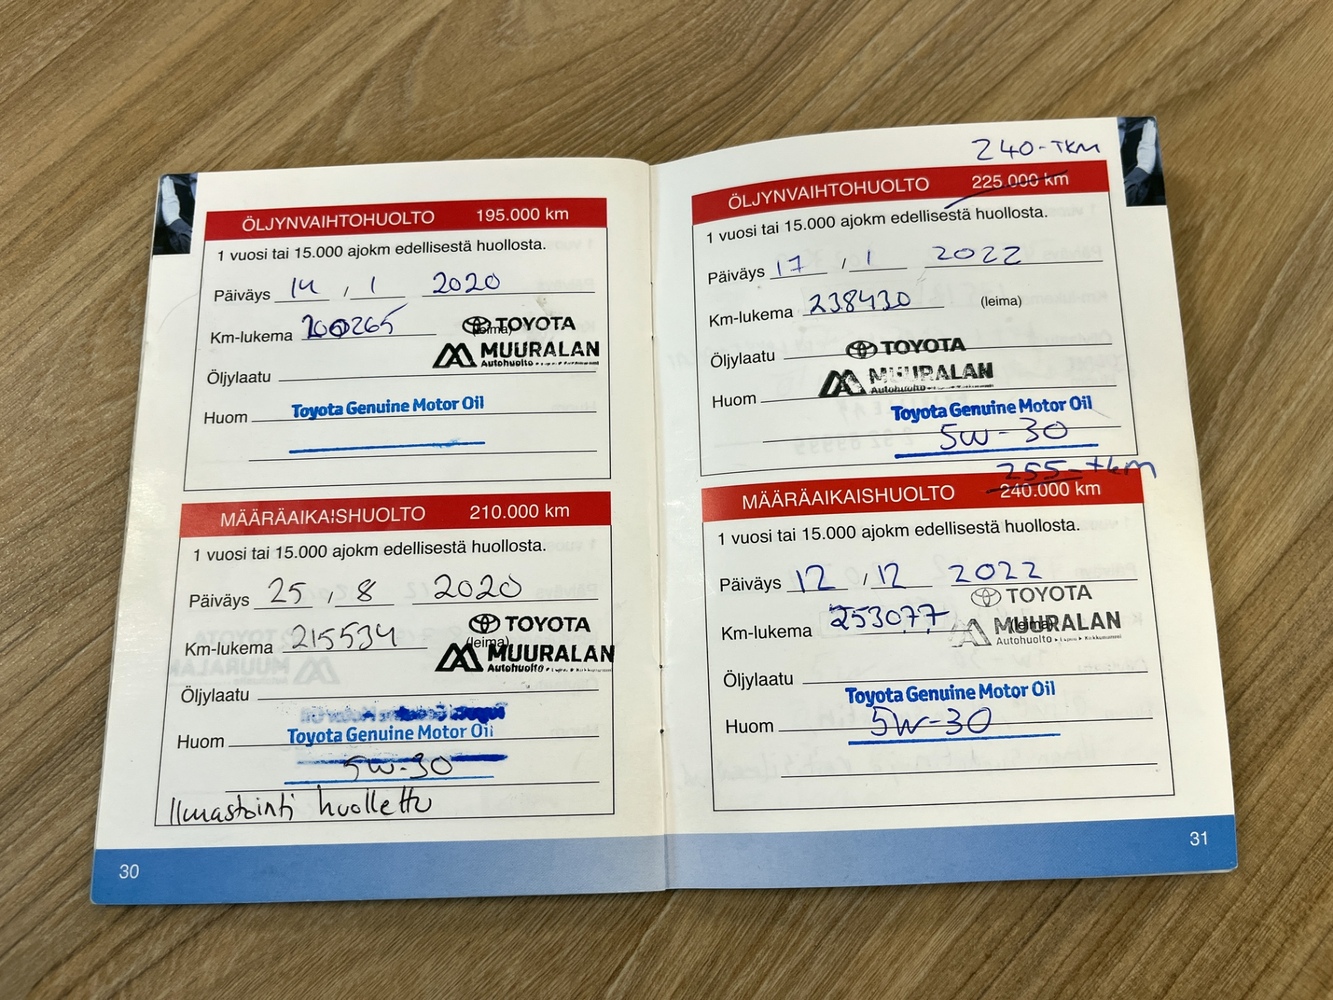 ÖLJYNVAIHTOHUOLTO 195.000 km
1 vuosi tai 15.000 ajokm edellisestä huollosta.
Päiväys 14 , 1 2020
Km-lukema 200265 (leima)
TOYOTA
MUURALAN
Autohuolto
Öljylaatu
Huom Toyota Genuine Motor Oil
MÄÄRÄAIKAISHUOLTO 210.000 km
1 vuosi tai 15.000 ajokm edellisestä huollosta.
Päiväys 25 , 8 2020
Km-lukema 215534 (leima)
TOYOTA
MUURALAN
Autohuolto
Öljylaatu
Huom Toyota Genuine Motor Oil
5W-30
Ilmastointi huollettu
30
240-TKM
ÖLJYNVAIHTOHUOLTO 225.000 km
1 vuosi tai 15.000 ajokm edellisestä huollosta.
Päiväys 17 , 1 2022
Km-lukema 238430 (leima)
Öljylaatu
TOYOTA
MUURALAN
Autohuolto
Huom
Toyota Genuine Motor Oil
5W-30
255-TKM
MÄÄRÄAIKAISHUOLTO 240.000 km
1 vuosi tai 15.000 ajokm edellisestä huollosta.
Päiväys 12 , 12 2022
Km-lukema 253077 (leima)
TOYOTA
MUURALAN
Autohuolto
Öljylaatu
Toyota Genuine Motor Oil
Huom 5W-30
31